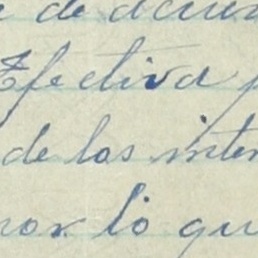 de acue
Efectiva p
de los inter
por lo qu